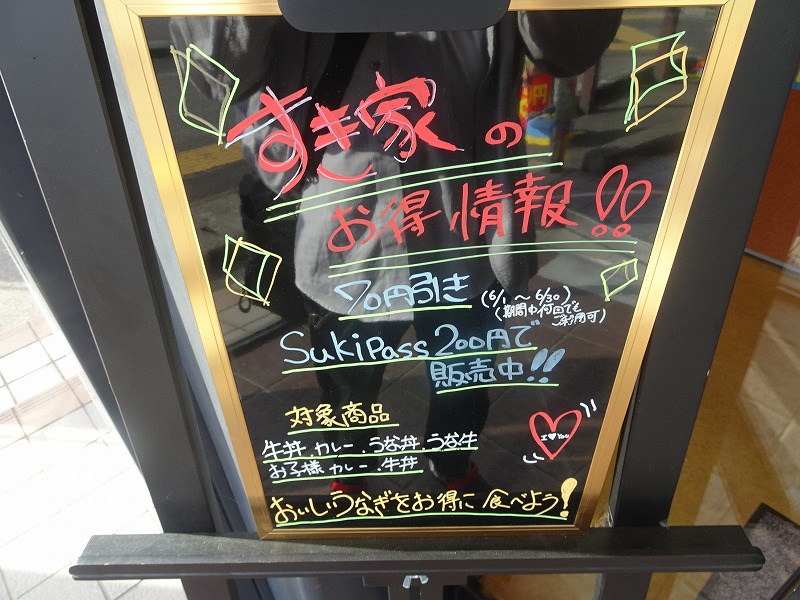 すき家の
お得情報!!
70円引き
(6/1 ～ 6/30)
(期間中何回でも
ご利用可)
SukiPass 200円で
販売中!!
対象商品
牛丼.カレー.うな丼.うな牛
お子様カレー.牛丼
I ♥ You
おいしいうなぎをお得に食べよう!